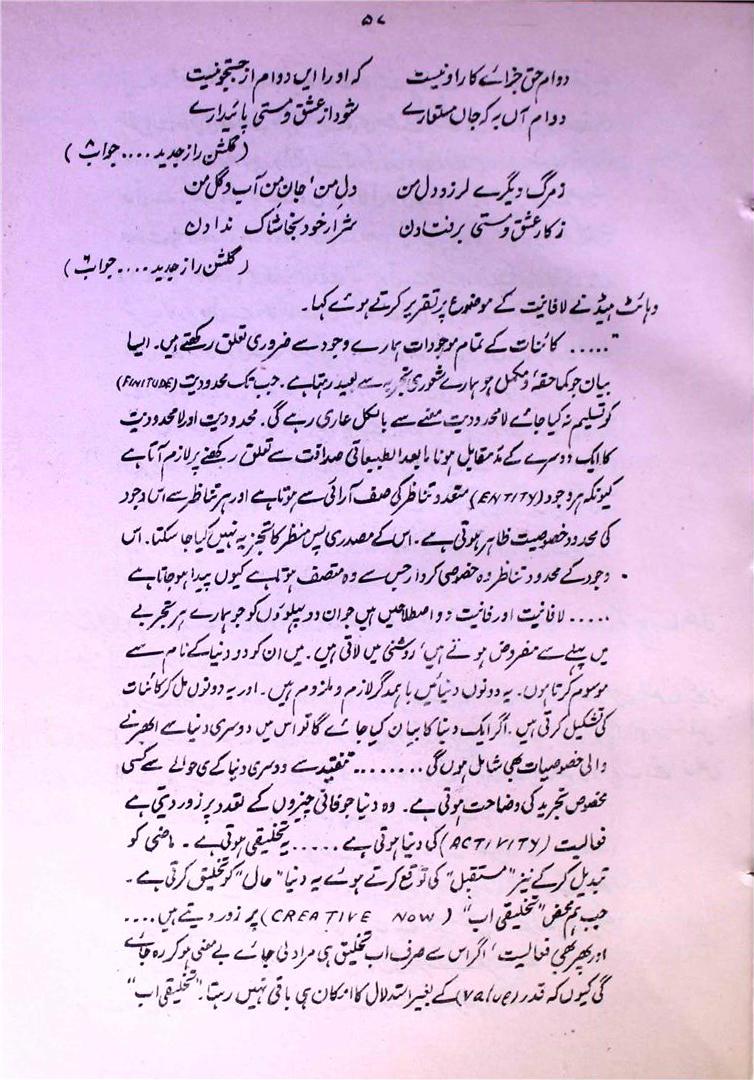 ۵۷
دوام حق جزائے کار او نیست    کہ او را ایں دوام از جستجو نیست
دوام آں بہ کہ جاں مستعارے    شود از عشق و مستی پائیدارے
(گلشن راز جدید .... جواب ۸)
ز مرگ دیگرے لرزد دل من    دل من' جان من آب و گل من
ز کار عشق و مستی بر فتادن    شرار خود بخاشاک ندادن
(گلشن راز جدید .... جواب ۶)
وہائٹ ہیڈ نے لافانیت کے موضوع پر تقریر کرتے ہوئے کہا۔
"..... کائنات کے تمام موجودات ہمارے وجود سے ضروری تعلق رکھتے ہیں۔ ایسا
بیان جو کماحقہٗ مکمل ہو ہمارے شعوری تجربہ سے بعید رہتا ہے۔ جب تک محدودیت (FINITUDE)
کو تسلیم نہ کیا جائے لامحدودیت معنے سے بالکل عاری رہے گی۔ محدودیت اور لامحدودیت
کا ایک دوسرے کے مدِّمقابل ہونا مابعد الطبیعاتی صداقت سے تعلق رکھنے پر لازم آتا ہے
کیونکہ ہر وجود (ENTITY) متعدد تناظر کی صف آرائی سے ہوتا ہے اور ہر تناظر سے اس وجود
کی محدود خصوصیت ظاہر ہوتی ہے۔ اس کے مصدری پس منظر کا تجزیہ نہیں کیا جا سکتا۔ اس
وجود کے محدود تناظر وہ خصوصی کردار جس سے وہ متصف ہوتا ہے کیوں پیدا ہو جاتا ہے
..... لافانیت اور فانیت دو اصطلاحیں ہیں جو ان دو پہلوؤں کو جو ہمارے ہر تجربے
میں پہلے سے مفروض ہوتے ہیں' روشنی میں لاتی ہیں۔ میں ان کو دو دنیا کے نام سے
موسوم کرتا ہوں۔ یہ دونوں دنیائیں باہمدگر لازم و ملزوم ہیں۔ اور یہ دونوں مل کر کائنات
کی تشکیل کرتی ہیں۔ اگر ایک دنیا کا بیان کیا جائے گا تو اس میں دوسری دنیا سے ابھرنے
والی خصوصیات بھی شامل ہوں گی ........ تنقید سے دوسری دنیا کے ہی حوالے سے کسی
مخصوص تجرید کی وضاحت ہوتی ہے۔ وہ دنیا جو فانی چیزوں کے تعدد پر زور دیتی ہے
فعالیت (ACTIVITY) کی دنیا ہوتی ہے ..... یہ تخلیقی ہوتی ہے۔ ماضی کو
تبدیل کر کے نیز "مستقبل" کی توقع کرتے ہوئے یہ دنیا "حال" کو تخلیق کرتی ہے۔
جب ہم محض "تخلیقی اب" (CREATIVE NOW) پر زور دیتے ہیں ....
اور پھر بھی فعالیت' اگر اس سے صرف اب تخلیق ہی مراد لی جائے بے معنی ہو کر رہ جائے
گی کیوں کہ قدر (Value) کے بغیر استدلال کا امکان ہی باقی نہیں رہتا۔ "تخلیقی اب"